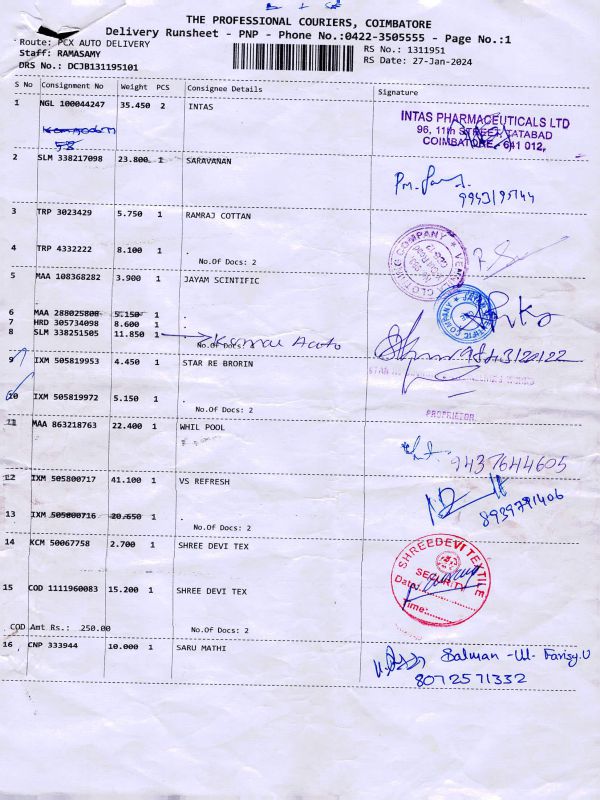 THE PROFESSIONAL COURIERS, COIMBATORE
Delivery Runsheet - PNP - Phone No.:0422-3505555 - Page No.:1
Route: PCX AUTO DELIVERY RS No.: 1311951
Staff: RAMASAMY RS Date: 27-Jan-2024
DRS No.: DCJB131195101
S No Consignment No Weight PCS Consignee Details Signature
1 NGL 100044247 35.450 2 INTAS
INTAS PHARMACEUTICALS LTD
96, 11th STREET, TATABAD
COIMBATORE - 641 012,
58
2 SLM 338217098 23.800 1 SARAVANAN
3 TRP 3023429 5.750 1 RAMRAJ COTTAN
4 TRP 4332222 8.100 1 .
No.Of Docs: 2
5 MAA 108368282 3.900 1 JAYAM SCINTIFIC
6 MAA 288025808 5.150 1
7 HRD 305734098 8.600 1
8 SLM 338251505 11.850 1 Kumar Auto
No.Of Docs:
9 IXM 505819953 4.450 1 STAR RE BRORIN
10 IXM 505819972 5.150 1 .
No.Of Docs: 2
PROPRIETOR
11 MAA 863218763 22.400 1 WHIL POOL
9437644605
12 IXM 505800717 41.100 1 VS REFRESH
8939791406
13 IXM 505800716 20.650 1 .
No.Of Docs: 2
14 KCM 50067758 2.700 1 SHREE DEVI TEX
SHREEDEVI TEXTILE
SECURITY
Date:
Time:
15 COD 1111960083 15.200 1 SHREE DEVI TEX
COD Amt Rs.: 250.00 No.Of Docs: 2
16 CNP 333944 10.000 1 SARU MATHI
Salman -ul- Farisy.U
8072571332